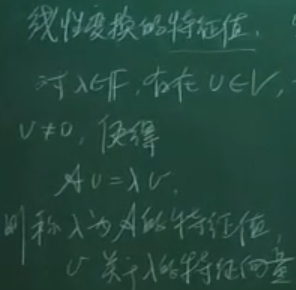 线性变换的特征值.
对λ∈F,存在υ∈V,
υ≠0,使得
Aυ=λυ.
则称λ为A的特征值,
υ关于λ的特征向量